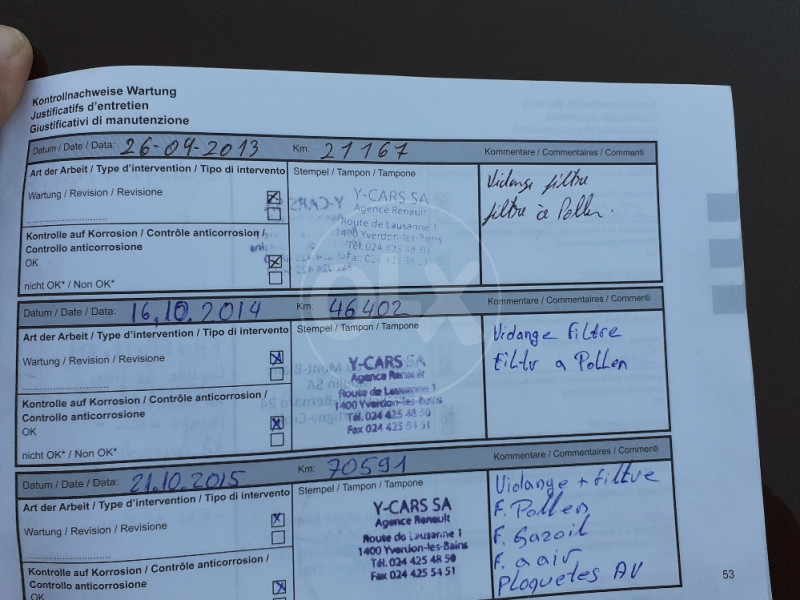 Kontrollnachweise Wartung
Justificatifs d'entretien
Giustificativi di manutenzione
Datum / Date / Data: 26-09-2013 Km: 21167 Kommentare / Commentaires / Commenti
Art der Arbeit / Type d'intervention / Tipo di intervento Stempel / Tampon / Tampone
Wartung / Revision / Revisione
Y-CARS SA
Agence Renault
Route de Lausanne 1
1400 Yverdon-les-Bains
Tél. 024 425 48 50
Vidange filtre
filtre à Pollen.
Kontrolle auf Korrosion / Contrôle anticorrosion /
Controllo anticorrosione
OK
nicht OK* / Non OK*
Datum / Date / Data: 16.10.2014 Km: 46402 Kommentare / Commentaires / Commenti
Art der Arbeit / Type d'intervention / Tipo di intervento Stempel / Tampon / Tampone
Wartung / Revision / Revisione
Y-CARS SA
Agence Renault
Route de Lausanne 1
1400 Yverdon-les-Bains
Tél. 024 425 48 50
Fax 024 425 54 51
Vidange Filtre
Filtr a Pollen
Kontrolle auf Korrosion / Contrôle anticorrosion /
Controllo anticorrosione
OK
nicht OK* / Non OK*
OLX
Datum / Date / Data: 21.10.2015 Km: 70591 Kommentare / Commentaires / Commenti
Art der Arbeit / Type d'intervention / Tipo di intervento Stempel / Tampon / Tampone
Wartung / Revision / Revisione
Y-CARS SA
Agence Renault
Route de Lausanne 1
1400 Yverdon-les-Bains
Tél. 024 425 48 50
Fax 024 425 54 51
Vidange + filtre
F. Pollen
F. Gazoil
F. a air
Plaquetes AV
Kontrolle auf Korrosion / Contrôle anticorrosion /
Controllo anticorrosione
OK
53